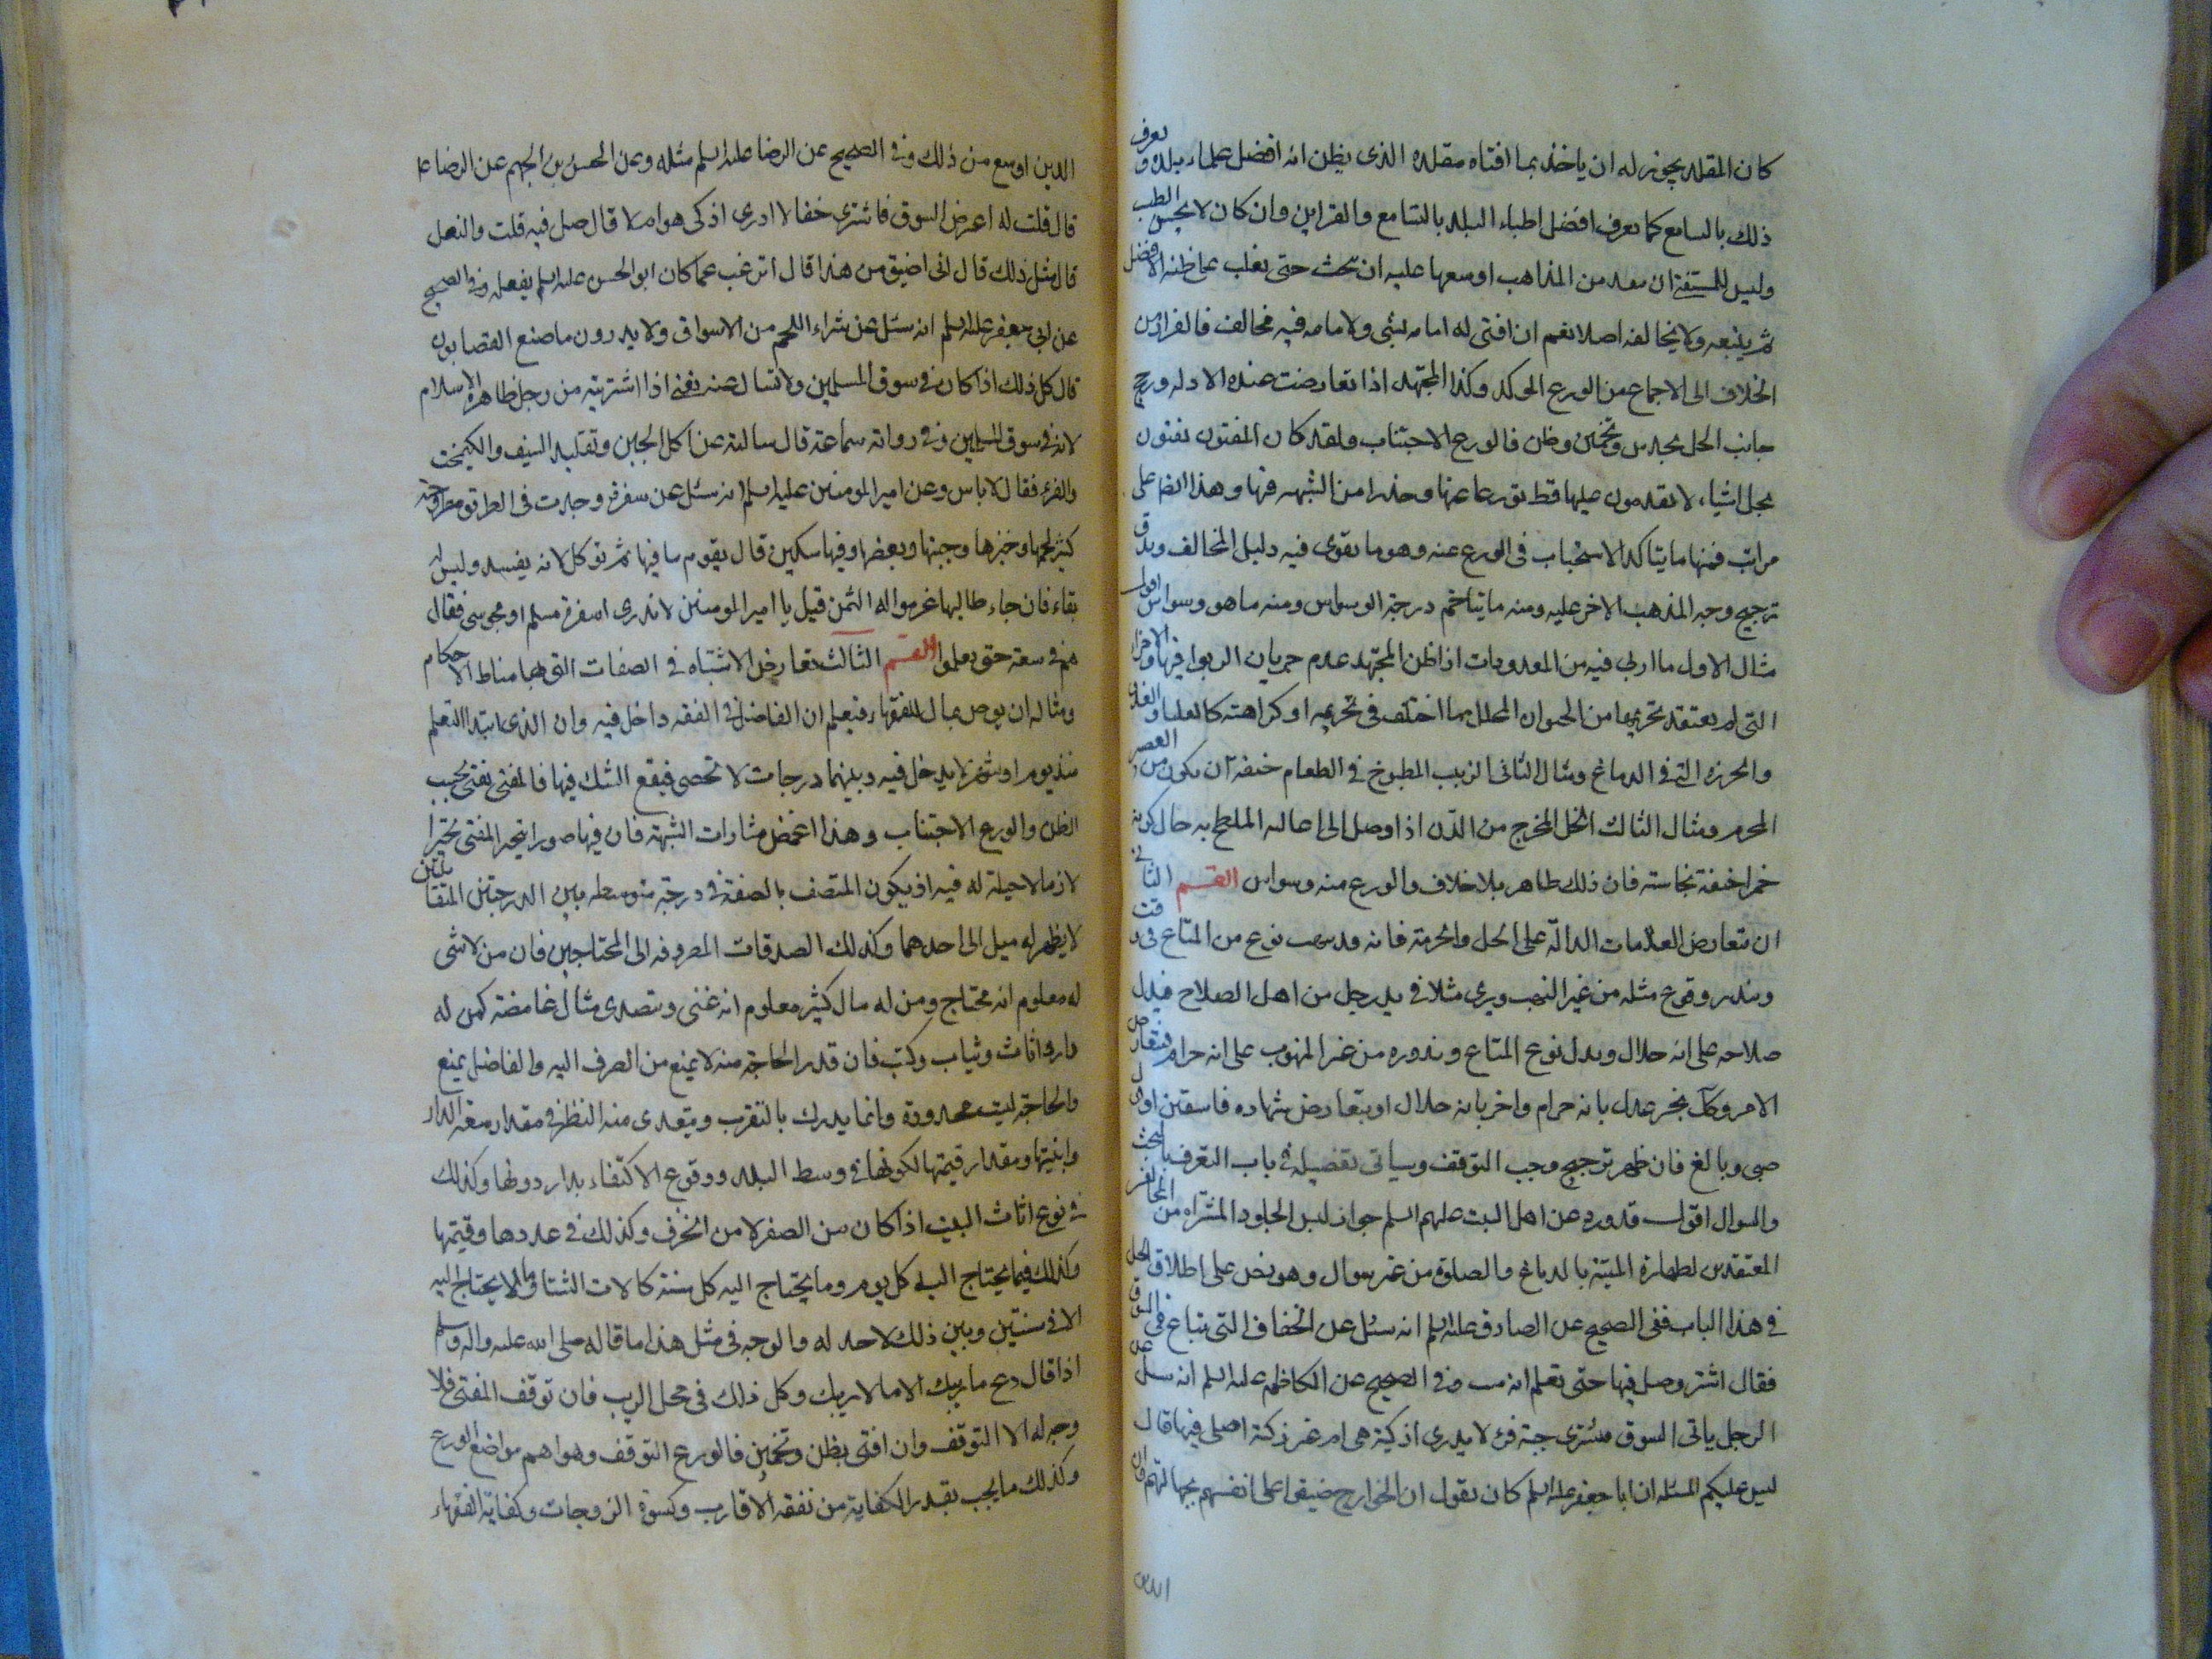 كان المقلد يجوز له ان ياخذ بما افتاه مقلده الذى يظن انه افضل علماء بلده و يعرف
ذلك بالتسامع كما يعرف افضل اطباء البلد بالتسامع والقراين وان كان لا يحسن الطب
وليس للمستفتى ان ينتقد من المذاهب اوسعها عليه بل عليه ان يبحث حتى يغلب على ظنه الافضل
ثم يتبعه ولا يخالفه اصلا نعم ان افتى له امامه بشى ولامامه فيه مخالف فالفرار من
الخلاف الى الاجماع من الورع المؤكد وكذا المجتهد اذا تعارضت عنده الادلة ورجح
جانب الحل بحدس وتخمين وظن فالورع الاجتناب ولقد كان المفتون يفتون
بحل اشياء لا يقدمون عليها قط تورعا عنها وحذرا من الشبهه فيها وهذا ايضا على
مراتب فمنها ما يتاكد الاستحباب فى الورع عنه وهو ما يقوى فيه دليل المخالف ويدق
ترجيح وجه المذهب الاخر عليه ومنه ما يتاخم درجة الوسواس ومنه ما هو وسواس اقول
مثال الاول ما اربى فيه من المعدودات اذا ظن المجتهد عدم جريان الربوا فيها والاجزاء
التى لم يعتقد تحريمها من الحيوان المحلل مما اختلف فى تحريمه او كراهته كالعلباء والغدد
والخرزة التى فى الدماغ ومثال الثانى الزبيب المطبوخ فى الطعام خيفة ان يكون من العصير
المحرم ومثال الثالث الخل المخرج من الدن اذا وصل الى اعاليه الملطخ به حال كونه
خمرا خيفة نجاسته فان ذلك طاهر بلا خلاف والورع منه وسواس القسم الثانى
ان تتعارض العلامات الدالة على الحل والحرمة فانه قد ينهب نوع من المتاع فى وقت
ويندر وقوع مثله من غير النهب ويرى مثلا فى يد رجل من اهل الصلاح فيدل
صلاحه على انه حلال ويدل نوع المتاع وندوره من غير المنهوب على انه حرام فيتعارض
الامر وكذا يخبر عدل بانه حرام واخر بانه حلال او يتعارض شهادة فاسقين او قول
صبى وبالغ فان ظهر ترجيح وجب التوقف وسياتى تفصيله فى باب التعرف والبحث
والسوال اقول قد ورد عن اهل البيت عليهم السلم جواز لبس الجلود المشتراه من المخالفين
المعتقدين لطهارة الميتة بالدباغ والصلوة من غير سوال وهو نص على اطلاق الحل
فى هذا الباب ففى الصحيح عن الصادق عليه السلم انه سئل عن الخفاف التى تباع فى السوق
فقال اشتر وصل فيها حتى تعلم انه ميت وفى الصحيح عن الكاظم عليه السلم انه سئل عن
الرجل ياتى السوق فيشترى جبة فرو لا يدرى اذكية هى ام غير ذكية ايصلى فيها قال
ليس عليكم المسئلة ان ابا جعفر عليه السلم كان يقول ان الخوارج ضيقوا على انفسهم بجهالتهم وان
الدين
الدين اوسع من ذلك وفى الصحيح عن الرضا عليه السلم مثله وعن الحسن بن الجهم عن الرضا ع
قال قلت له اعترض السوق فاشترى خفا لا ادرى اذكى هو ام لا قال صل فيه قلت والنعل
قال مثل ذلك قال انى اضيق من هذا قال اترغب عما كان ابو الحسن عليه السلم يفعله وفى الصحيح
عن ابى جعفر عليه السلم انه سئل عن شراء اللحم من الاسواق ولا يدرون ما صنع القصابون
قال كل ذلك اذا كان فى سوق المسلمين ولا تسال عنه يعنى اذا اشتريته من رجل ظاهره الاسلام
لانه فى سوق المسلمين وفى رواية سماعة قال سالته عن اكل الجبن وتقليد السيف والكيمخت
والفرو فقال لا باس وعن امير المومنين عليه السلم انه سئل عن سفرة وجدت فى الطريق مطروحة
كثير لحمها وخبزها وجبنها وبيضها وفيها سكين قال يقوم ما فيها ثم توكل لانه يفسد وليس له
بقاء فان جاء طالبها غرموا له الثمن قيل يا امير المومنين لا ندرى اسفرة مسلم او مجوسى فقال
هم فى سعة حتى يعلموا القسم الثالث تعارض الاشتباه فى الصفات التى بها مناط الاحكام
ومثاله ان يوصى بمال للفقهاء فيعلم ان الفاضل فى الفقه داخل فيه وان الذى ابتدا التعلم
منذ يوم او شهر لا يدخل فيه وبينهما درجات لا تحصى فيقع الشك فيها فالمفتى يفتى بحسب
الظن والورع الاجتناب وهذا اغمض مثارات الشبهة فان فيها صورا يتحير المفتى تحيرا
لازما لا حيلة له فيه اذ يكون المتصف بالصفة فى درجة متوسطه بين الدرجتين المتقابلتين
لا يظهر له ميل الى احدهما وكذلك الصدقات المصروفه الى المحتاجين فان من لا شى
له معلوم انه محتاج ومن له مال كثير معلوم انه غنى ويتصدى مثال غامضة كمن له
دار واثاث وثياب وكتب فان قدر الحاجة منه لا يمنع من الصرف اليه والفاضل يمنع
والحاجة ليست محدودة وانما يدرك بالتقريب ويتعدى منه النظر فى مقدار سعة الدار
وابنيتها ومقدار قيمتها لكونها فى وسط البلد ووقوع الاكتفاء بدار دونها وكذلك
فى نوع اثاث البيت اذا كان من الصفر لا من الخزف وكذلك فى عددها وقيمتها
وكذلك فيما يحتاج اليه كل يوم وما يحتاج اليه كل سنة كالات الشتاء وما لا يحتاج اليه
الا فى سنتين وبين ذلك لا حد له والوجه فى مثل هذا ما قاله صلى الله عليه واله وسلم
اذا قال دع ما يريبك الى ما لا يريبك وكل ذلك فى محل الريب فان توقف المفتى فلا
وجه له الا التوقف وان افتى بظن وتخمين فالورع التوقف وهو اهم مواضع الورع
وكذلك ما يجب بقدر الكفاية من نفقة الاقارب وكسوة الزوجات وكفاية الفقهاء